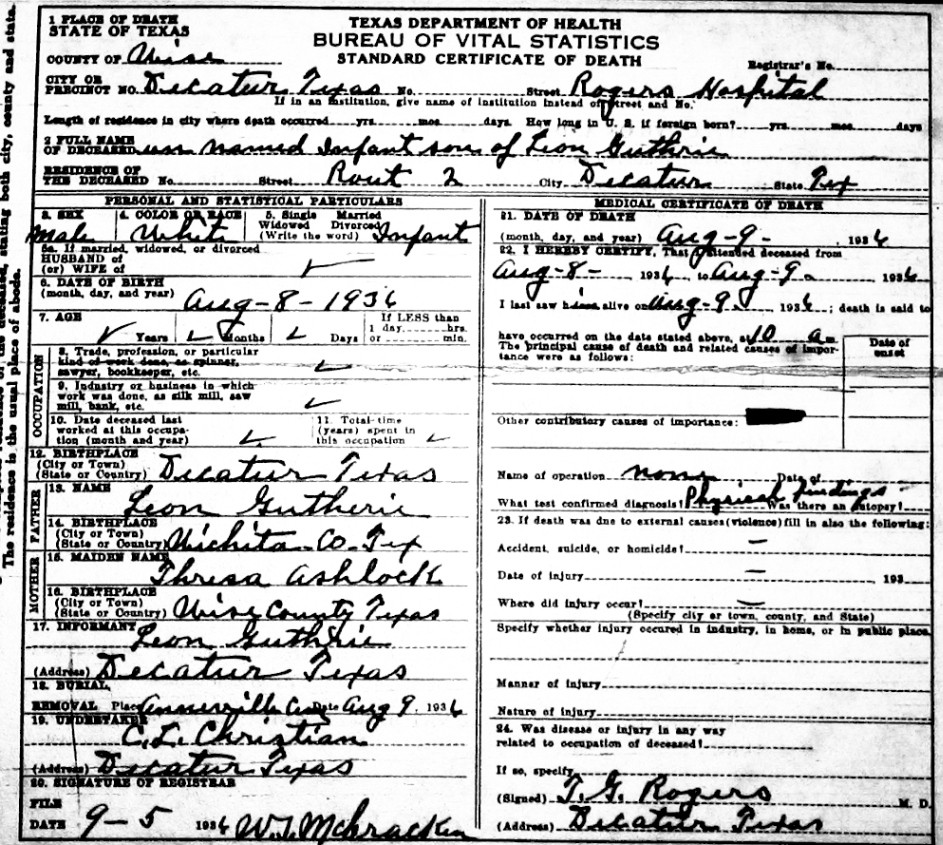 TEXAS DEPARTMENT OF HEALTH
BUREAU OF VITAL STATISTICS
STANDARD CERTIFICATE OF DEATH
1 PLACE OF DEATH
STATE OF TEXAS
COUNTY OF Wise
Registrar's No.
CITY OR PRECINCT NO. Decatur Texas No. Street Rogers Hospital
If in an institution, give name of institution instead of street and No.
Length of residence in city where death occurred yrs. mos. days. How long in U. S. if foreign born? yrs. mos. days
2 FULL NAME OF DECEASED un named Infant son of Leon Guthrie
RESIDENCE OF THE DECEASED No. Street Rout 2 City Decatur State Tex
PERSONAL AND STATISTICAL PARTICULARS
3. SEX Male
4. COLOR OR RACE Whit
5. Single Married Widowed Divorced (Write the word) Infant
5a. If married, widowed, or divorced
HUSBAND OF
(or) WIFE of
6. DATE OF BIRTH
(month, day, and year) Aug-8-1936
7. AGE
Years Months Days
If LESS than
1 day hrs.
or min.
OCCUPATION
8. Trade, profession, or particular
kind of work done, as spinner,
sawyer, bookkeeper, etc.
9. Industry or business in which
work was done, as silk mill, saw
mill, bank, etc.
10. Date deceased last
worked at this occupa-
tion (month and year)
11. Total time
(years) spent in
this occupation
12. BIRTHPLACE
(City or Town)
(State or Country) Decatur Texas
FATHER
13. NAME
Leon Gutherie
14. BIRTHPLACE
(City or Town)
(State or Country) Wichita Co. Tex
MOTHER
15. MAIDEN NAME
Thresa Ashlock
16. BIRTHPLACE
(City or Town)
(State or Country) Wise County Texas
17. INFORMANT
Leon Guthrie
(Address) Decatur Texas
18. BURIAL,
REMOVAL Place Date Aug 9, 1936
19. UNDERTAKER
C. L. Christian
(Address) Decatur Texas
20. SIGNATURE OF REGISTRAR
FILE
DATE 9-5 1936 W. T. McCracken
MEDICAL CERTIFICATE OF DEATH
21. DATE OF DEATH
(month, day, and year) Aug-9- , 1936
22. I HEREBY CERTIFY, That I attended deceased from
Aug-8- , 1936, to Aug-9 , 1936
I last saw him alive on Aug-9 , 1936; death is said to
have occurred on the date stated above, at 10 a m.
The principal cause of death and related causes of impor-
tance were as follows:
Date of
onset
Other contributory causes of importance:
Name of operation none Date of
What test confirmed diagnosis? Physical findings Was there an autopsy?
23. If death was due to external causes (violence) fill in also the following:
Accident, suicide, or homicide? —
Date of injury — , 193
Where did injury occur? —
(Specify city or town, county, and State)
Specify whether injury occured in industry, in home, or in public place.
Manner of injury
Nature of injury
24. Was disease or injury in any way
related to occupation of deceased?
If so, specify
(Signed) T. G. Rogers M. D.
(Address) Decatur Texas
deceased, stating both city, county and state.
The residence is the usual place of abode.